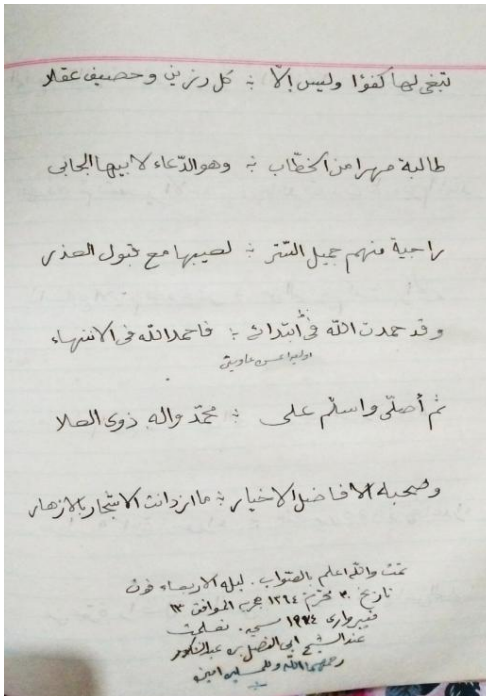 تبغي لها كفؤا وليس إلّا ؞ كل رزين وحصيف عقلا
طالبة مهرا من الخطّاب ؞ وهو الدّعاء لابيها الجابي
راجية منهم جميل الستر ؞ لعيبها مع قبول العذر
وقد حمدت الله في أبتدائ ؞ فاحمد الله في الانتهاء
ثم أصلّي واسلّم على ؞ محمّد واله ذوى العلا
وصحبه الافاضل الاخيار ؞ ما ازدانت الاشجار بالازهار
تمت والله اعلم بالصواب. ليلة الاربعاء
تاريخ ٣٠ محرّم ١٣٦٤ الموافق ١٣
١٩٧٤
عند الشيخ ابي الفضل بن عبد الشكور
رحمهما الله وللمسلمين امين